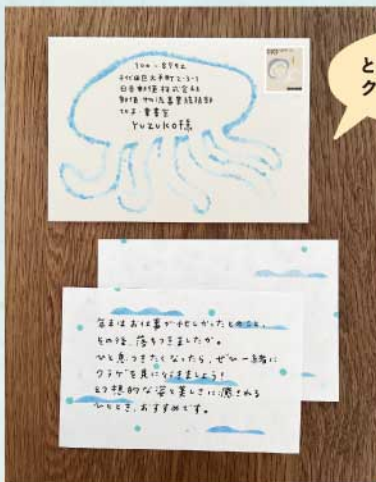 100-8792
千代田区大手町2-3-1
日本郵便株式会社
郵便・物流事業統括部
切手・葉書室
YUZUKO様
と
ク
年末はお仕事が忙しかったとのこと、
その後、落ちつきましたか。
ひと息つきたくなったら、ぜひ一緒に
クラゲを見に行きましょう!
幻想的な姿と美しさに癒される
ひととき、おすすめです。